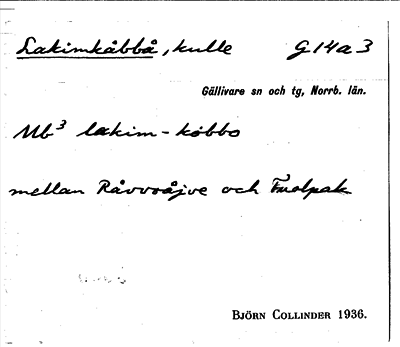 Lakimkåbbå, kulle G 14 a 3
Gällivare sn och tg, Norrb. län.
Ub³ lakim-kobbo
mellan Råvvoåjve och
BJÖRN COLLINDER 1936.